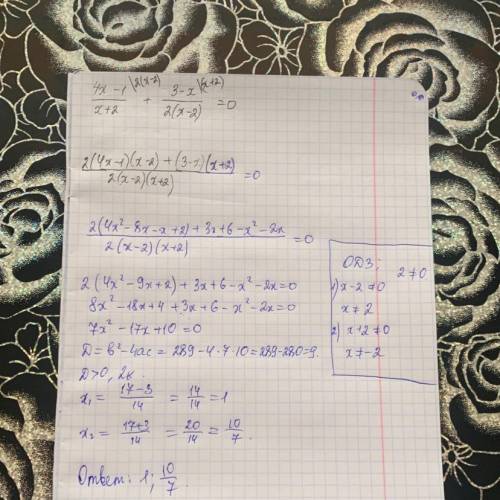 (4x-1)/(x+2) \2(x-2) + (3-x)/(2(x-2)) \(x+2) =0
(2(4x-1)(x-2)+(3-x)(x+2))/(2(x-2)(x+2)) =0
(2(4x²-8x-x+2)+3x+6-x²-2x)/(2(x-2)(x+2)) =0
2(4x²-9x+2)+3x+6-x²-2x=0
8x²-18x+4+3x+6-x²-2x=0
7x²-17x+10=0
D=b²-4ac=289-4·7·10=289-280=9.
D>0, 2к.
x₁= (17-3)/14 = 14/14 =1
x₂= (17+3)/14 = 20/14 = 10/7.
Ответ: 1; 10/7.
ОДЗ:
2≠0
1) x-2≠0
x≠2
2) x+2≠0
x≠-2